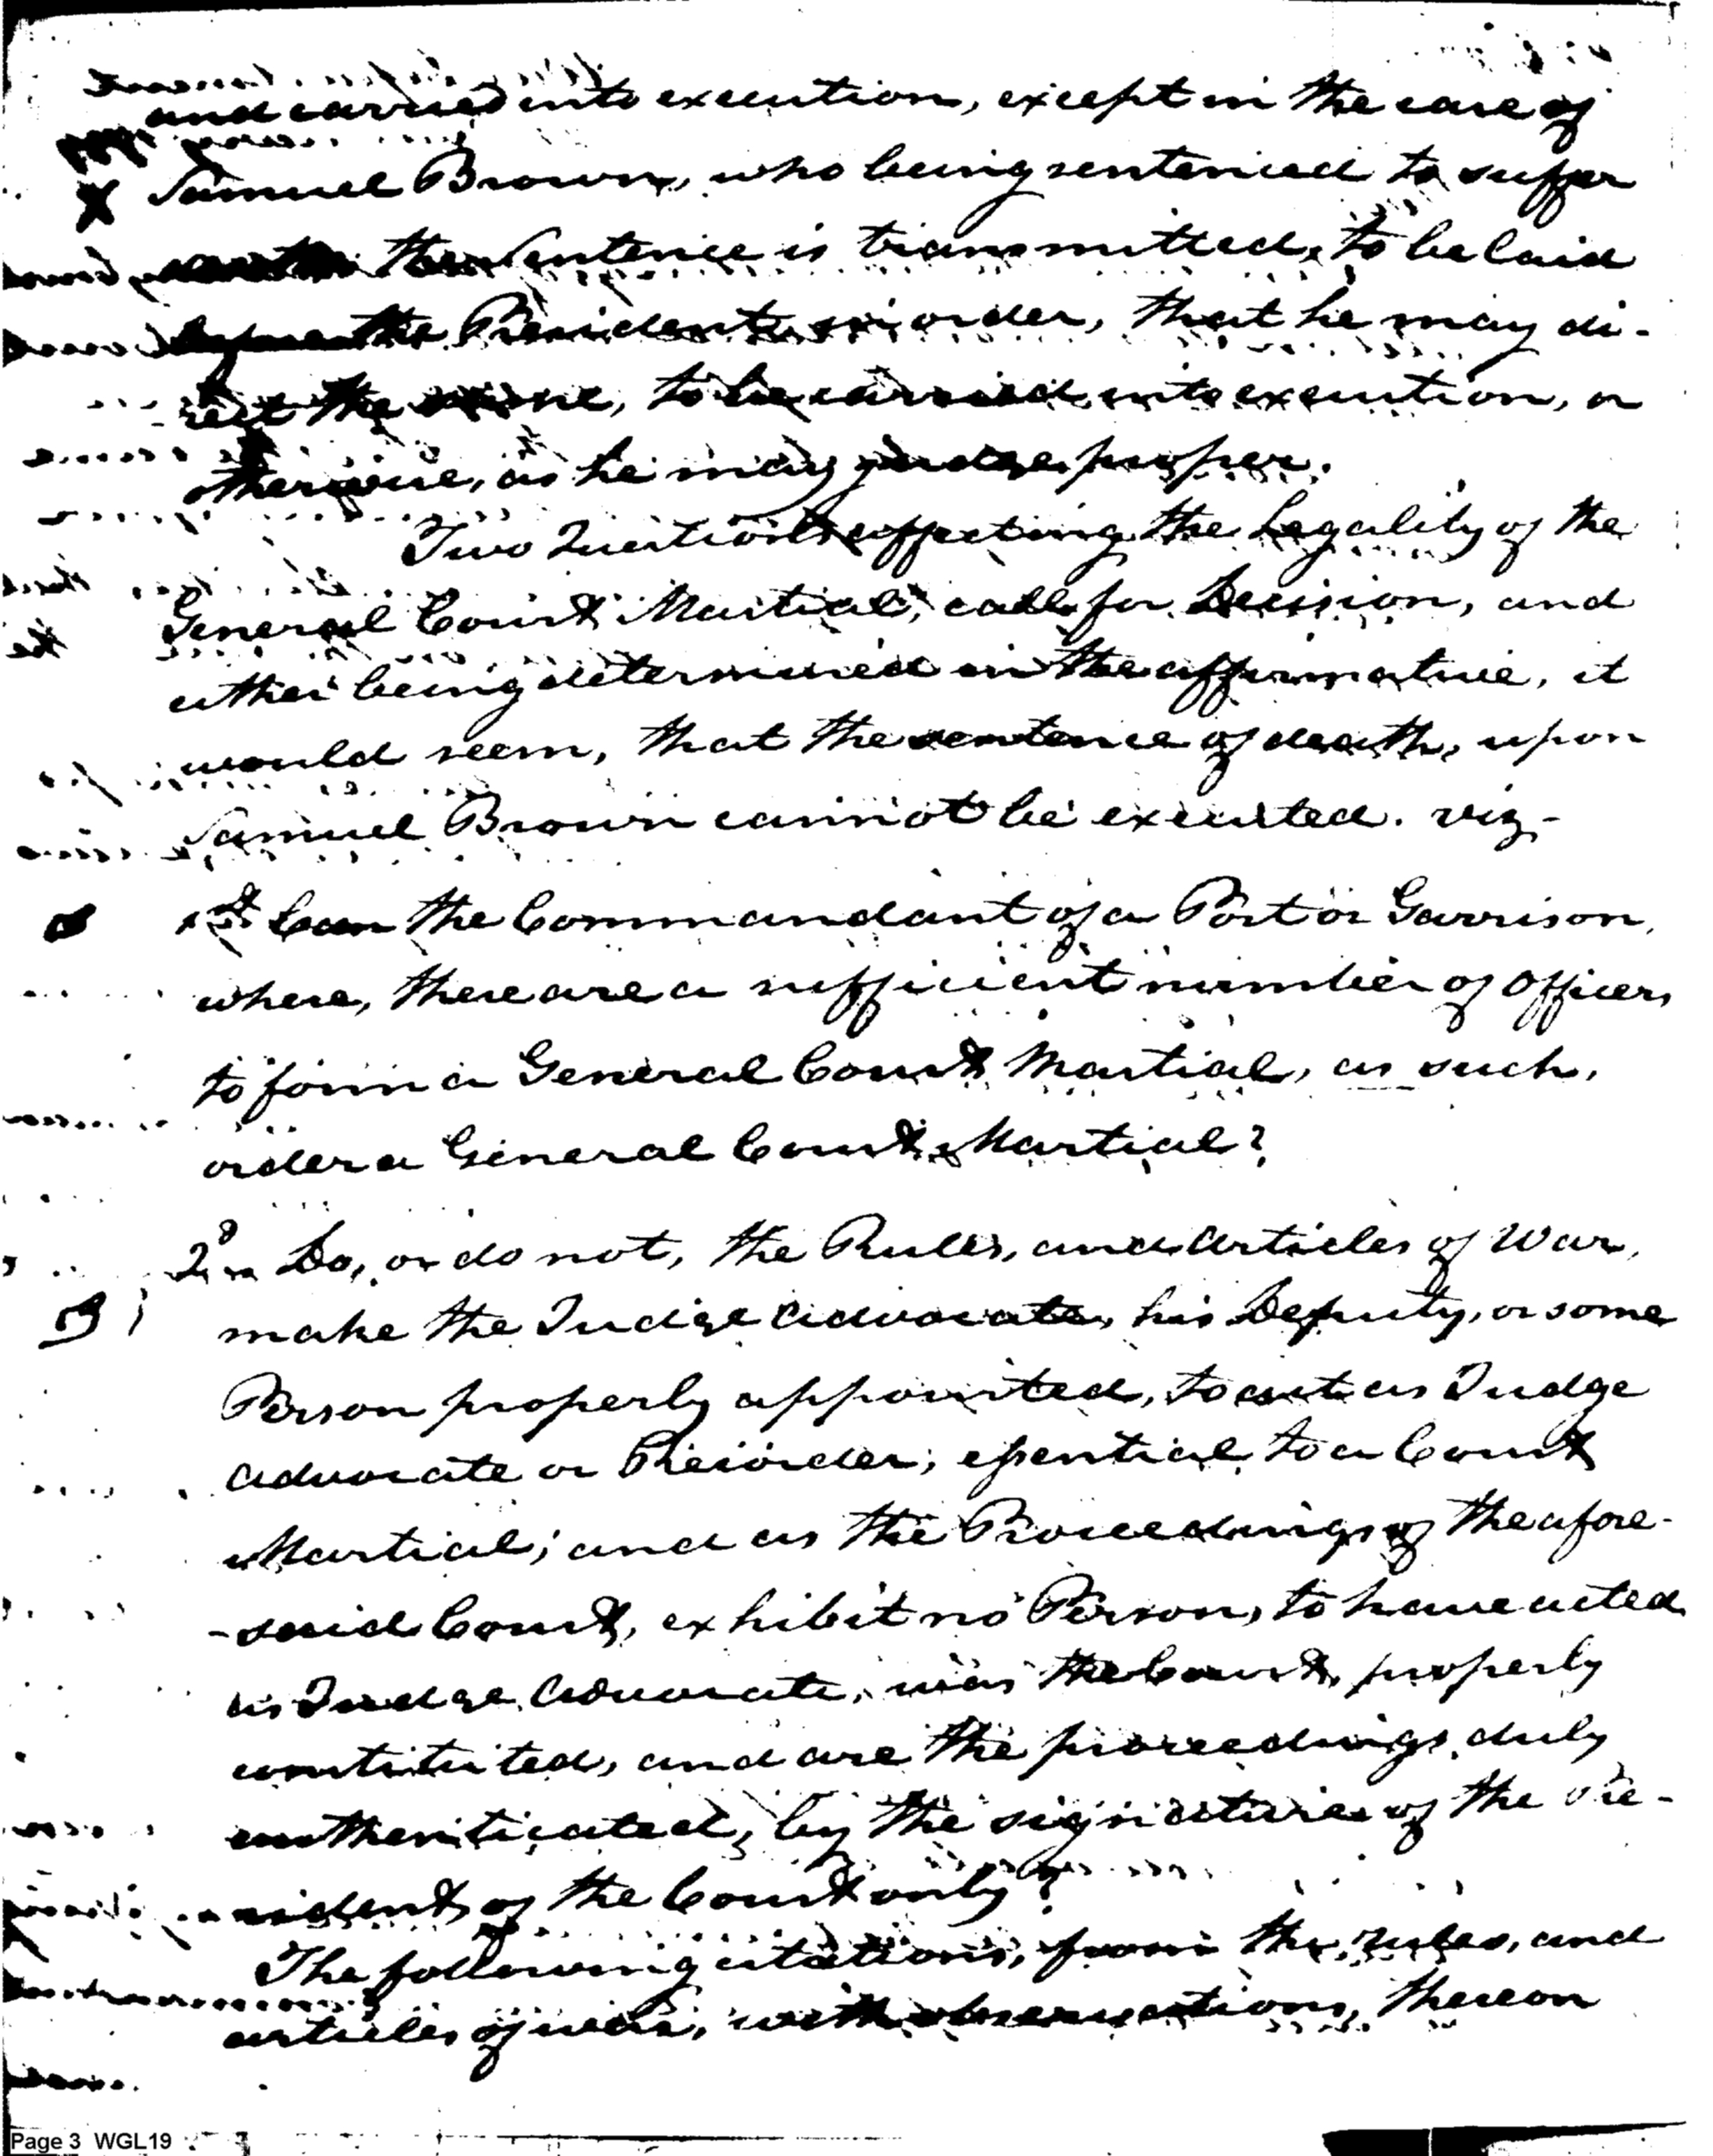 and carried into execution, except in the case of
Samuel Brown, who being sentenced to suffer
death the Sentence is transmitted, to be laid
before the President, in order, that he may di-
rect the same, to be carried into execution, or
otherwise, as he may judge proper.
Two Questions affecting the Legality of the
General Court Martial, call for Decision, and
either being determined in the affirmative, it
would seem, that the sentence of death, upon
Samuel Brown cannot be executed. viz-
1st Can the Commandant of a Post or Garrison,
where, there are a sufficient number of Officers
to form a General Court Martial, as such,
order a General Court Martial?
2d Do, or do not, the Rules, and articles of War,
make the Judge advocate, his Deputy, or some
Person properly appointed, to act as Judge
advocate or Recorder, essential to a Court
Martial; and as the Proceedings of the afore-
-said Court, exhibit no Person, to have acted
as Judge Advocate, was the Court, properly
constituted, and are the proceedings, duly
authenticated, by the signature of the Pre-
sident, of the Court only?
The following citations, from the rules, and
articles of war, with observations, thereon
Page 3 WGL19